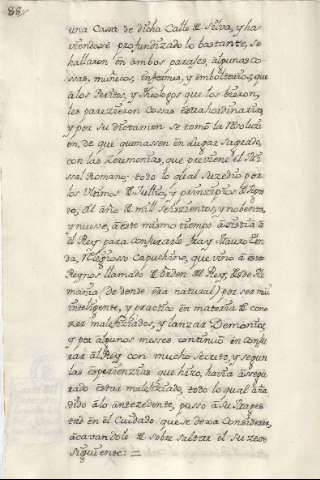 88
una Cassa de dicha Calle de Silva, y ha
viendose profundizado lo bastante, se
hallaron en ambos parajes, algunas co
sas, muñecos, y emboltorios, que
a los Peritos, y Theologos que los vieron,
les parezieron cossas extrahordinarias,
y por su dictamen se tomó la Resoluci
on, de que quemassen en Lugar Sagrado,
con las Zeremonias, que previene el Mi
ssal Romano; todo lo qual suzedio por
los Ultimos de Jullio, y prinzipios de Agos
to, del año de mill seiszientos, y nobenta,
y nueve, a este mismo tiempo asistia a
el Rey para conjurarle fray Mauro
da, Religiosso Capuchino, que vino a estos
Reynos llamado de orden del Rey, desde Ale
mania (de donde era natural) por ser mui
inteligente, y practico en materia de cono
zer malefiziados, y lanzar Demonios,
y por algunos meses continuó en conju
rar al Rey con mucho Secreto, y segun
las experienzias que hizo, havia assegu
rado estar malefiziado, todo lo qual aña
dido a lo antezedente, pusso a
en el Cuidado que se dexa Considerar,
acavandole de sobre saltar el suzeso
Siguiente: